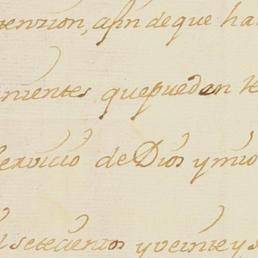 tenzion, afin de que ha
nientes que puedan te
servicio de Dios y mio
setecientos y veinte y s